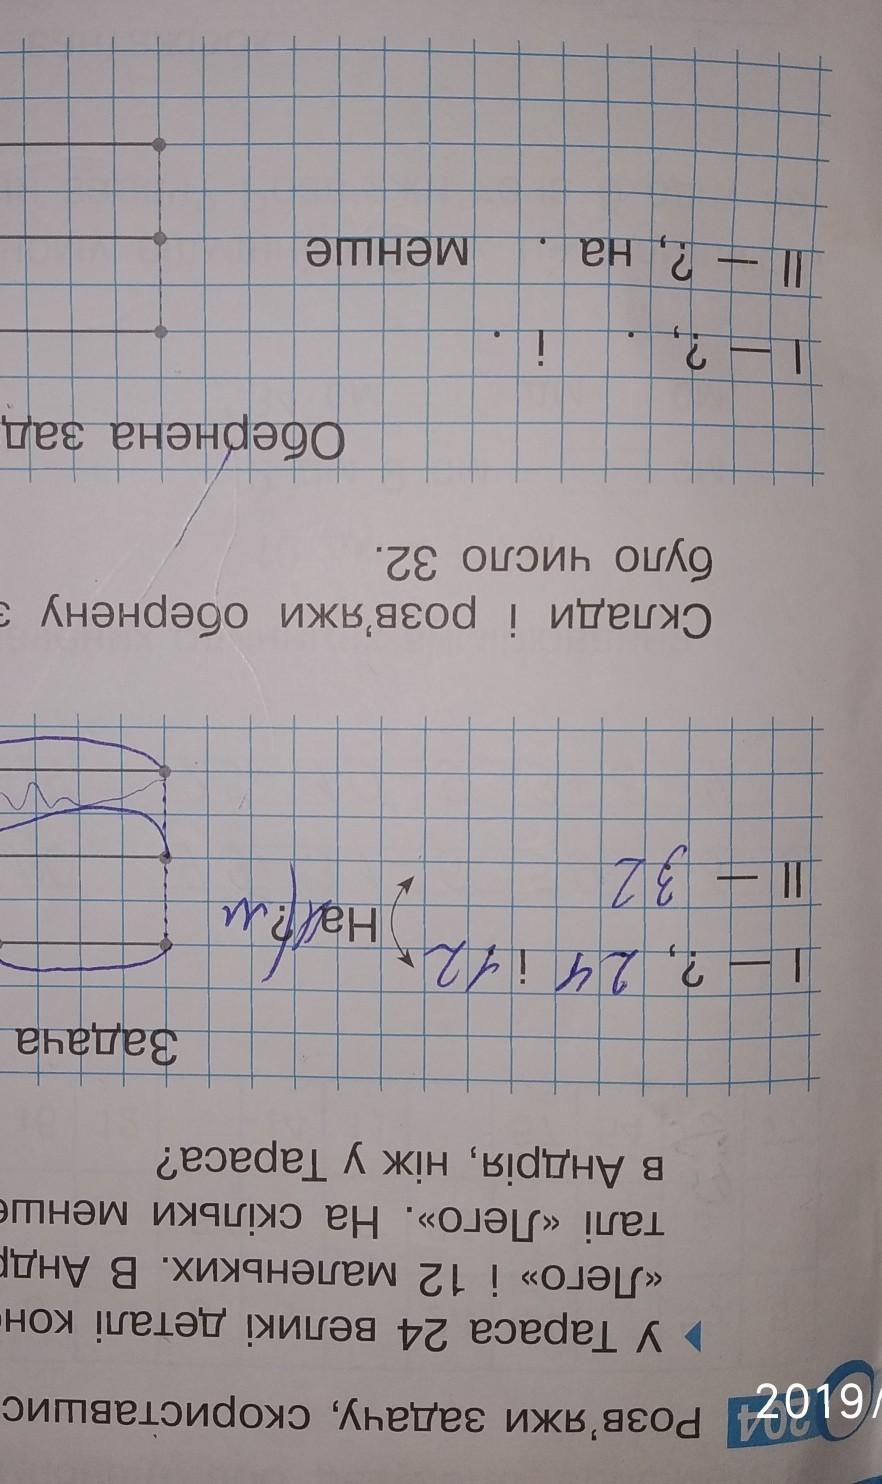 204
Розв'яжи задачу, скориставшис
У Тараса 24 великі деталі конс
«Лего» і 12 маленьких. В Андр
талі «Лего». На скільки менше
в Андрія, ніж у Тараса?
Задача
I — ?, 24 і 12
На ?
II — 32
Склади і розв'яжи обернену з
було число 32.
Обернена зад
I — ?, . і .
II — ?, на . менше
2019/